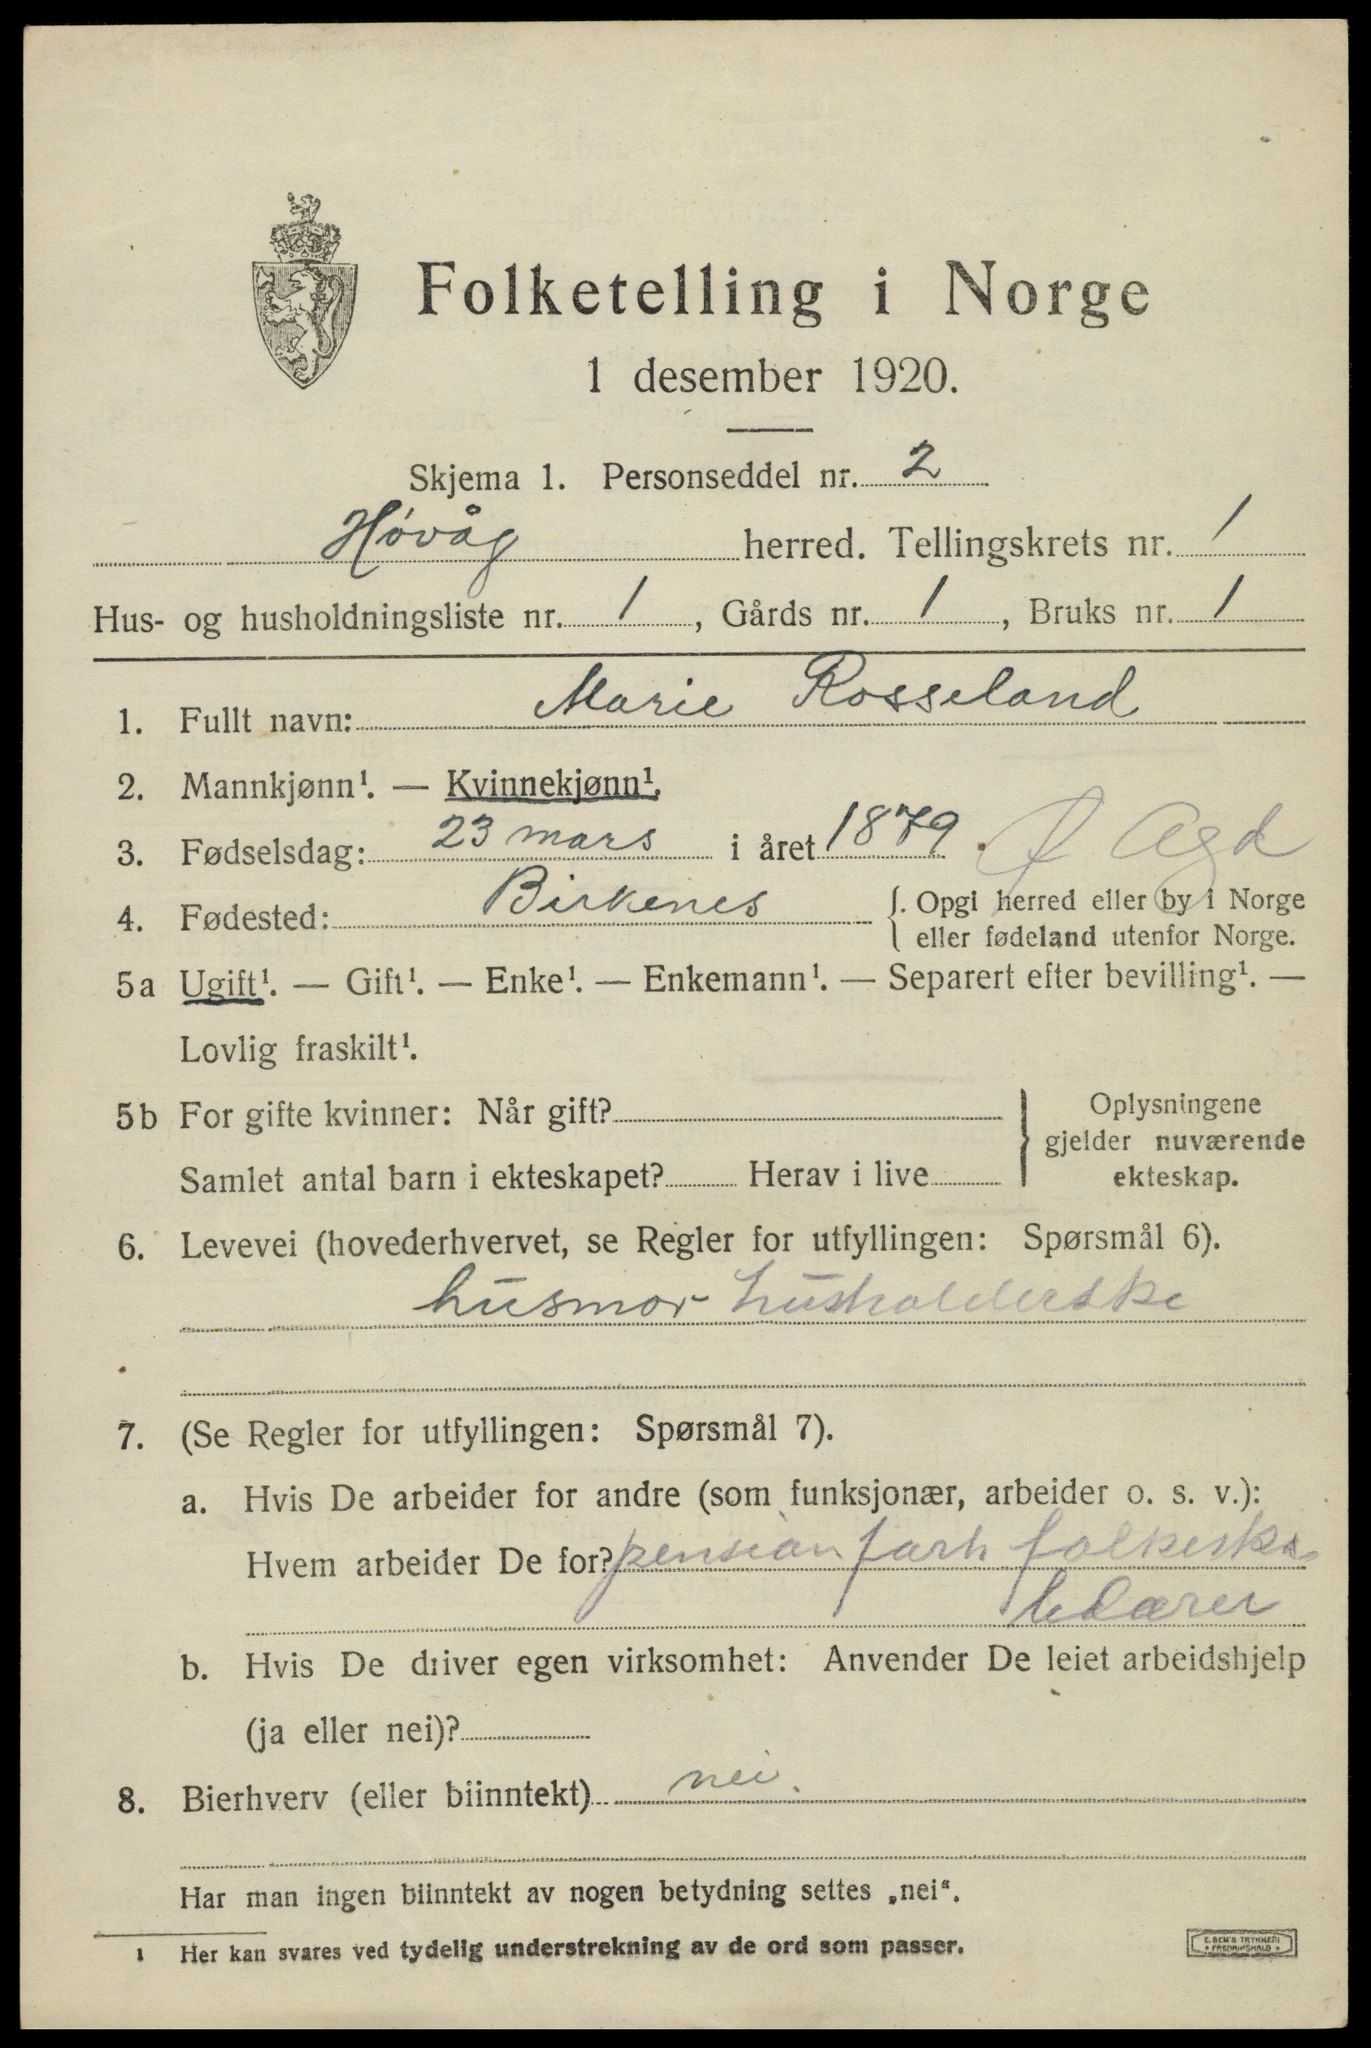 Folketelling i Norge
1 desember 1920.
Skjema 1. Personseddel nr. 2
Høvåg herred. Tellingskrets nr. 1
Hus- og husholdningsliste nr. 1, Gårds nr. 1, Bruks nr. 1
1. Fullt navn: Marie Rosseland
2. Mannkjønn¹. — Kvinnekjønn¹.
3. Fødselsdag: 23 mars i året 1879. Ø Agd
4. Fødested: Birkenes { Opgi herred eller by i Norge
eller fødeland utenfor Norge.
5a Ugift¹. — Gift¹. — Enke¹. — Enkemann¹. — Separert efter bevilling¹. —
Lovlig fraskilt¹.
5b For gifte kvinner: Når gift?
Samlet antal barn i ekteskapet? Herav i live
} Oplysningene
gjelder nuværende
ekteskap.
6. Levevei (hovederhvervet, se Regler for utfyllingen: Spørsmål 6).
husmor husholderske
7. (Se Regler for utfyllingen: Spørsmål 7).
a. Hvis De arbeider for andre (som funksjonær, arbeider o. s. v.):
Hvem arbeider De for? pension forh folkesko
lelærer
b. Hvis De driver egen virksomhet: Anvender De leiet arbeidshjelp
(ja eller nei)?
8. Bierhverv (eller biinntekt) nei.
Har man ingen biinntekt av nogen betydning settes „nei".
¹ Her kan svares ved tydelig understrekning av de ord som passer.
E. SEM'S TRYKKERI
• FREDRIKSHALD •